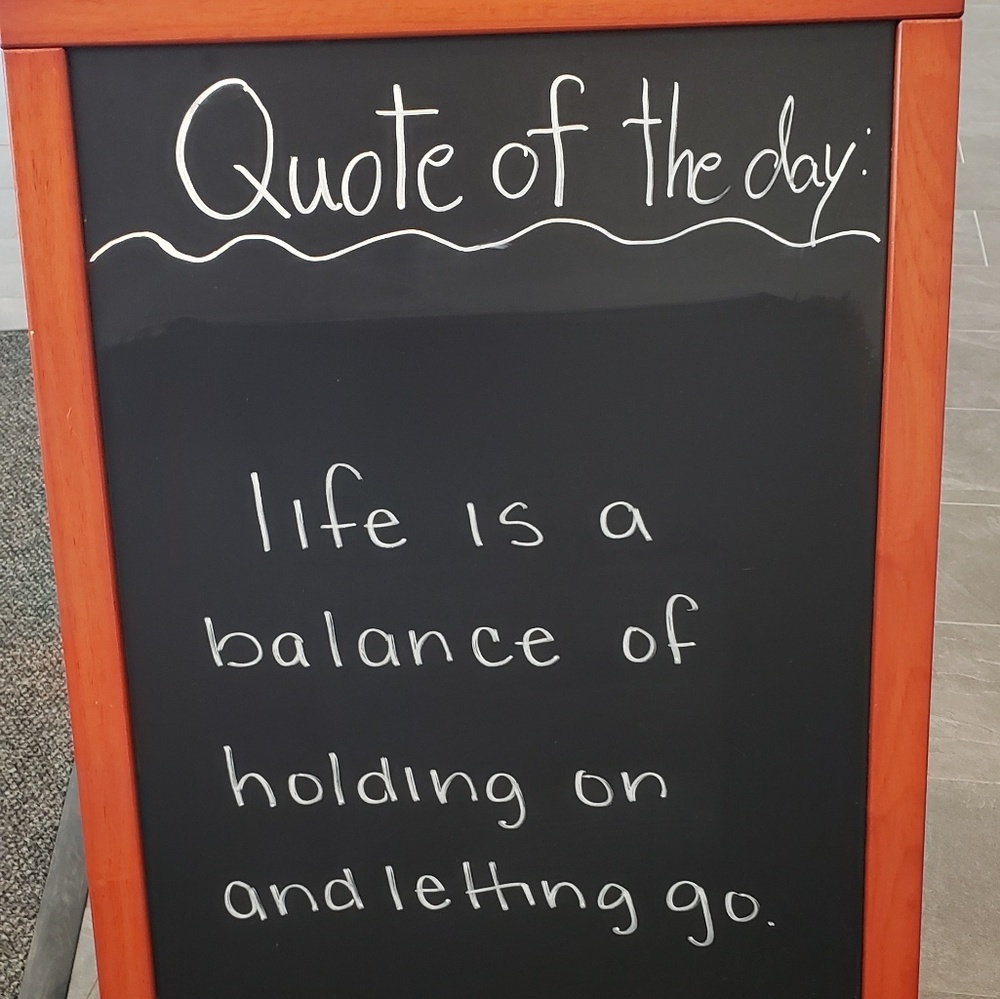 Quote of the day:
life is a
balance of
holding on
and letting go.